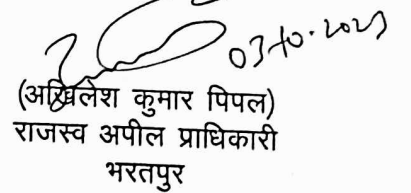 03-10-2023
(अखिलेश कुमार पिपल)
राजस्व अपील प्राधिकारी
भरतपुर